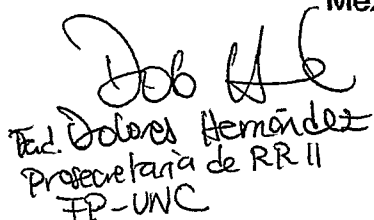 Mex
Trad. Dolores Hernández
Prosecretaria de RR II
FP-UNC